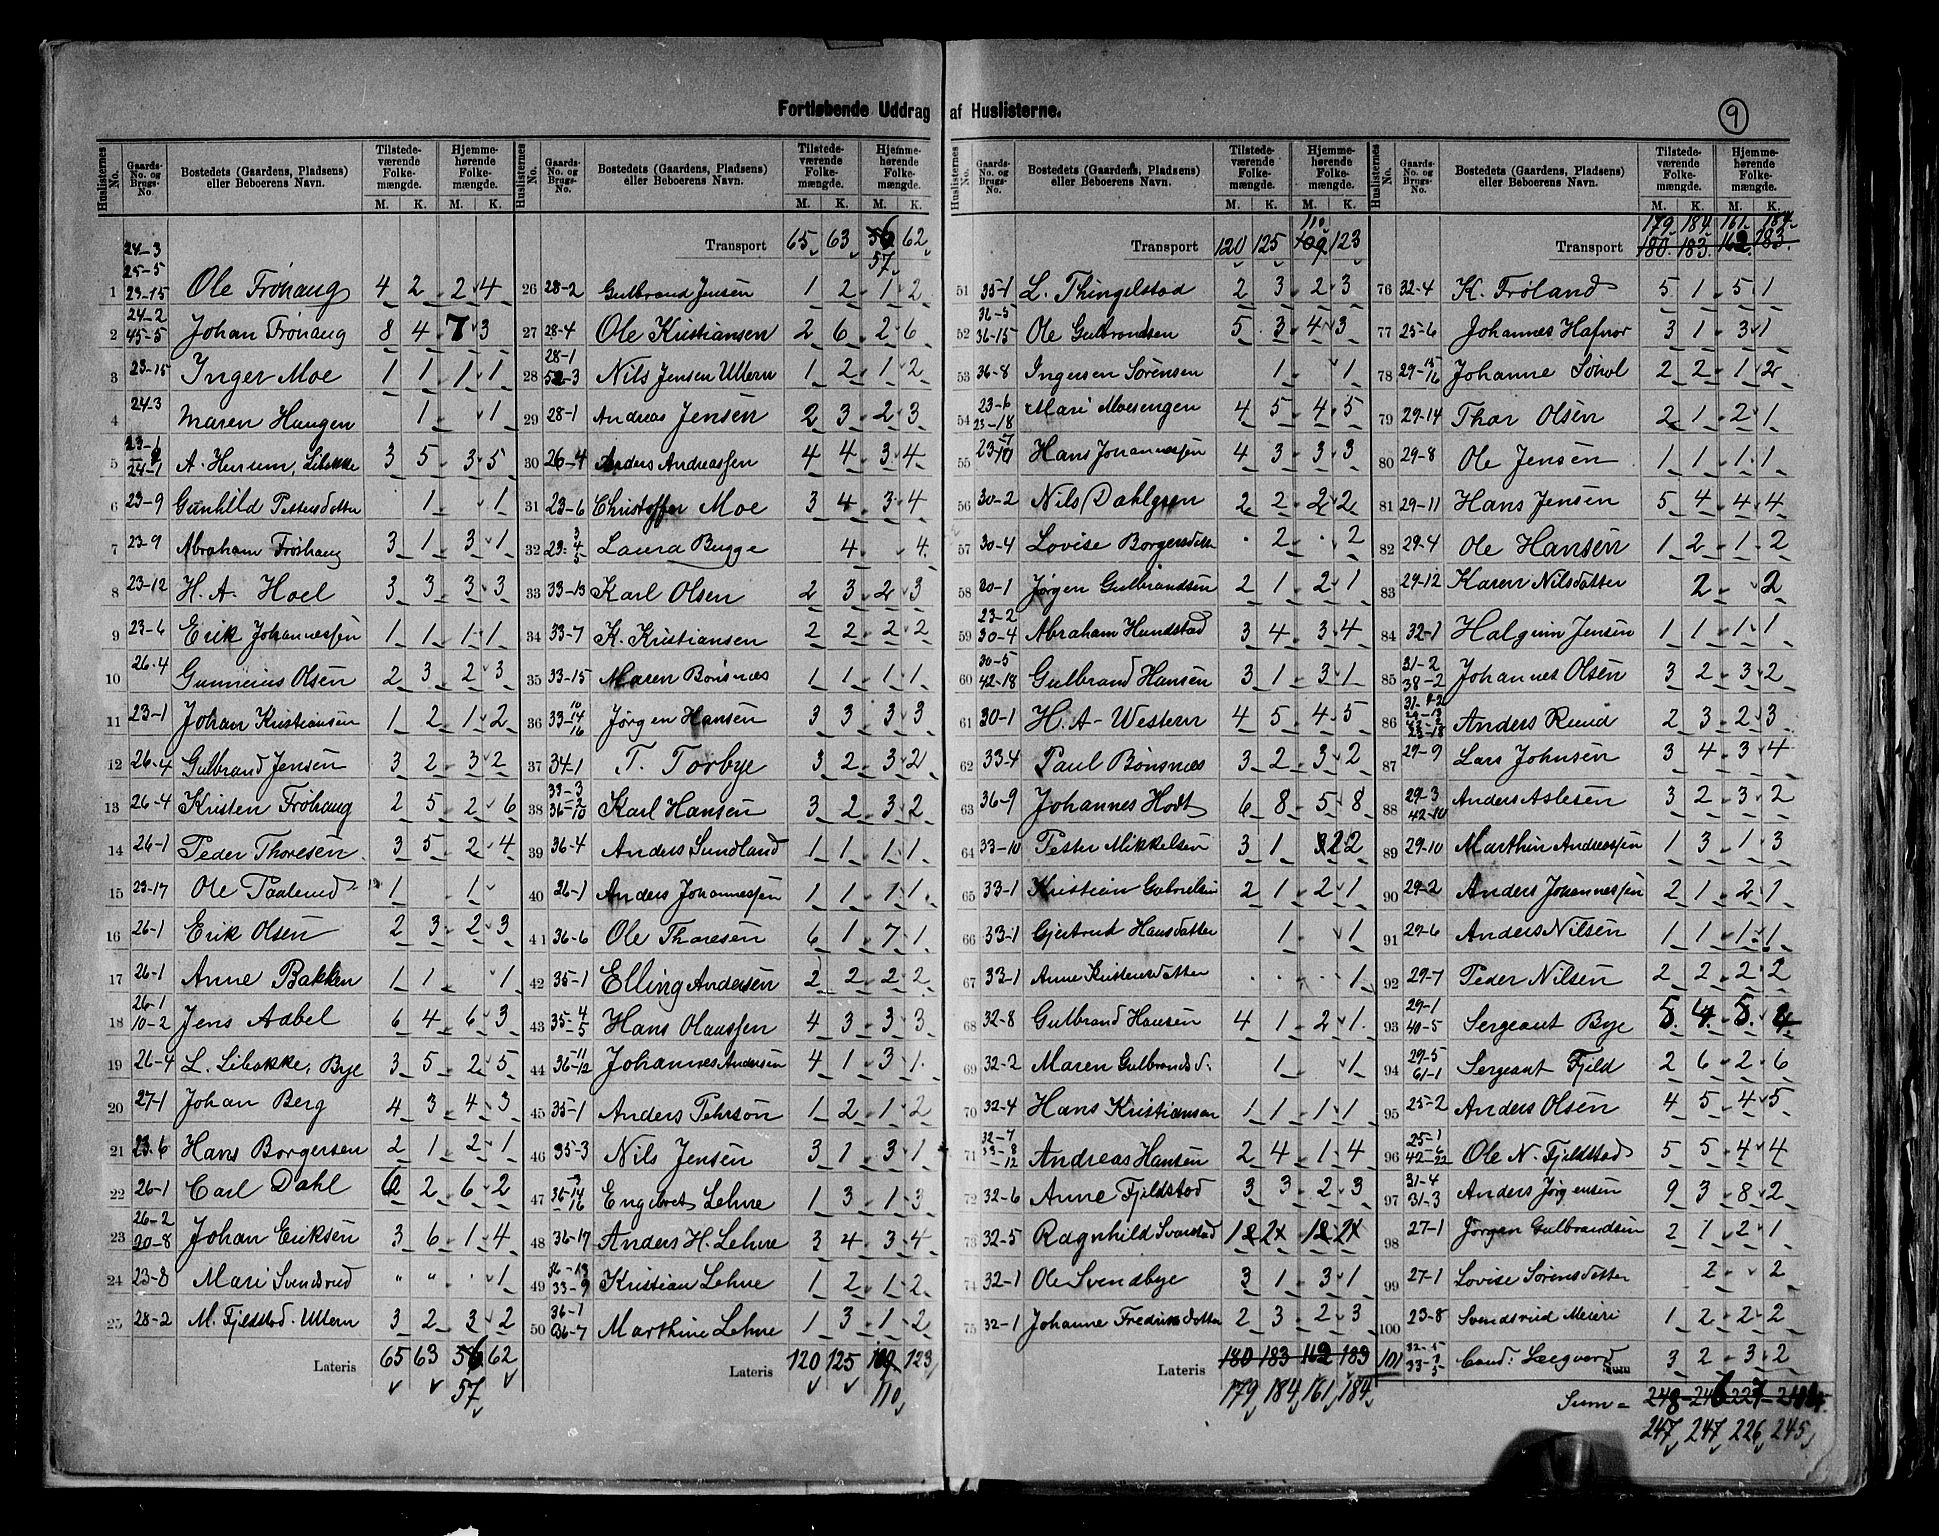 Fortløbende Uddrag af Huslisterne.
9
Huslisternes No. Gaards-No. og Brugs-No. Bostedets (Gaardens, Pladsens) eller Beboerens Navn. Tilstedeværende Folkemængde. M. K. Hjemmehørende Folkemængde. M. K.
24-3
25-5
1 23-15 Ole Fröhaug 4 2 2 4
24-2
2 45-5 Johan Fröhaug 8 4 7 3
3 23-15 Inger Moe 1 1 1 1
4 24-3 Maren Haugen 1 1
23-1
5 24-1 A. Herum, Libakke 3 5 3 5
6 23-9 Gunhild Pettersdatter 1 1
7 23-9 Abraham Fröhaug 3 1 3 1
8 23-12 H. A. Hoel 3 3 3 3
9 23-6 Erik Johannessen 1 1 1 1
10 26-4 Gunneius Olsen 2 3 2 3
11 23-1 Johan Kristiansen 1 2 1 2
12 26-4 Gulbrand Jensen 3 2 3 2
13 26-4 Kristen Fröhaug 2 5 2 6
14 26-1 Peder Thoresen 3 5 2 4
15 23-17 Ole Paalerud 1 1
16 26-1 Erik Olsen 2 3 2 3
17 26-1 Anne Bakken 1 1 1
26-1
18 10-2 Jens Aabel 6 4 6 3
19 26-4 L. Libakke, Bye 3 5 2 5
20 27-1 Johan Berg 4 3 4 3
21 23-6 Hans Borgersen 2 1 2 1
22 26-1 Carl Dahl 2 6 2
26-2
23 20-8 Johan Eriksen 3 6 1 4
24 23-8 Mari Svendsrud " " 1
25 28-2 M. Fjeldstad Ullern 3 2 3 2
Lateris 65 63 56 62
57
Huslisternes No. Gaards-No. og Brugs-No. Bostedets (Gaardens, Pladsens) eller Beboerens Navn. Tilstedeværende Folkemængde. M. K. Hjemmehørende Folkemængde. M. K.
Transport 65 63 56 62
57
26 28-2 Gulbrand Jensen 1 2 1 2
27 28-4 Ole Kristiansen 2 6 2 6
28-1
28 52-3 Nils Jensen Ullern 1 2 1 2
29 28-1 Andreas Jensen 2 3 2 3
30 26-4 Anders Andreassen 4 4 3 4
31 23-6 Christoffer Moe 3 4 3 4
32 23-3 4 5 Laura Bugge 4 4
33 33-13 Karl Olsen 2 3 2 3
34 33-7 K. Kristiansen 2 2 2 2
35 33-15 Maren Bönsnæs 1 1 1 1
36 33-10 14 16 Jörgen Hansen 3 3 3 3
37 34-1 T. Torbye 3 2 3 2
33-3
38 36-2 10 Karl Hansen 3 2 3 2
39 36-4 Anders Sundland 1 1 1 1
40 26-1 Anders Johannessen 1 1 1 1
41 36-6 Ole Thoresen 6 1 7 1
42 35-1 Elling Andersen 2 2 2 2
43 35-4 5 Hans Olaussen 4 3 3 3
44 36-11 12 Johannes Andersen 4 1 3 1
45 35-1 Anders Pehrson 1 2 1 2
46 35-3 Nils Jensen 3 1 3 1
47 36-3 14 16 Engebret Lehne 1 3 1 3
48 36-17 Anders H. Lehne 3 4 3 4
36-13
49 33-9 Kristian Lehne 1 2 1 2
36-1
50 36-7 Marthine Lehne 1 3 1 2
Lateris 120 125 109 123
110
Huslisternes No. Gaards-No. og Brugs-No. Bostedets (Gaardens, Pladsens) eller Beboerens Navn. Tilstedeværende Folkemængde. M. K. Hjemmehørende Folkemængde. M. K.
110
Transport 120 125 109 123
51 35-1 L. Thingelstad 2 3 2 3
36-5
52 36-15 Ole Gulbrandsen 5 3 4 3
53 36-8 Ingersen Sörensen 1 1
23-6
54 23-18 Mari Moesengen 4 5 4 5
55 23-7 10 Hans Johannessen 4 3 3 3
56 30-2 Nils Dahlgren 2 2 2 2
57 30-4 Lovise Borgersdatter 2 2
58 30-1 Jörgen Gulbrandsen 2 1 2 1
23-2
59 30-4 Abraham Hundstad 3 4 3 4
30-5
60 42-18 Gulbrand Hansen 3 1 3 1
61 30-1 H. A. Western 4 5 4 5
62 33-4 Paul Bönsnæs 3 2 3 2
63 36-9 Johannes Hodt 6 8 5 8
64 33-10 Petter Mikkelsen 3 1 2 2
65 33-1 Kristian Gabrielsen 2 1 2 1
66 33-1 Gjertrud Hansdatter 1 1
67 33-1 Anne Kristensdatter 1
68 32-8 Gulbrand Hansen 4 1 2 1
69 32-2 Maren Gulbrandsd: 1 1
70 32-4 Hans Kristiansen 1 1 1 1
32-7
71 33-8 12 Andreas Hansen 2 4 1 4
72 32-6 Anne Fjeldstad 3 3 2 3
73 32-5 Ragnhild Svarstad
74 32-1 Ole Svendbye 3 1 3 1
75 32-1 Johanne Fredriksdatter 2 3 2 3
Lateris 180 183 162 183
179 184 161 184
Huslisternes No. Gaards-No. og Brugs-No. Bostedets (Gaardens, Pladsens) eller Beboerens Navn. Tilstedeværende Folkemængde. M. K. Hjemmehørende Folkemængde. M. K.
179 184 161 184
Transport 180 183 162 183
76 32-4 K. Fröland 5 1 5 1
77 25-6 Johannes Hafnor 3 1 3 1
78 29-15 16 Johanne 2 2 1 2
79 29-14 Thor Olsen 2 1 2 1
80 29-8 Ole Jensen 1 1 1 1
81 29-11 Hans Jensen 5 4 4 4
82 29-4 Ole Hansen 1 2 1 2
83 29-12 Karen Nilsdatter 2 2
84 32-1 Halgrim Jensen 1 1 1 1
31-2
85 38-2 Johannes Olsen 3 2 3 2
86 Anders Ruud 2 3 2 3
87 29-9 Lars Johnsen 3 4 3 4
29-3
88 42-10 Anders Aslesen 3 2 3 2
89 29-10 Marthin Andreassen 1 3 1 3
90 29-2 Anders Johannessen 2 1 2 1
91 29-6 Anders Nilsen 1 1 1 1
92 29-7 Peder Nilsen 2 2 2 2
29-1
93 40-5 Sergeant Bye 5 4 5 4
29-5
94 61-1 Sergeant Fjeld 2 6 2 6
95 25-2 Anders Olsen 4 5 4 5
25-1
96 42-6 22 Ole N. Fjeldstad 5 5 4 4
31-4
97 31-3 Anders Jörgensen 9 3 8 2
98 27-1 Jörgen Gulbrandsen 2 1 2 1
99 27-1 Lovise Sörensdatter 2 2
100 23-8 Svendsrud Meieri 1 2 2 2
101 32-5 33-3 5 Cand: Lægvard 3 2 3 2
Sum
Sum = 248 246 227
247 247 226 245